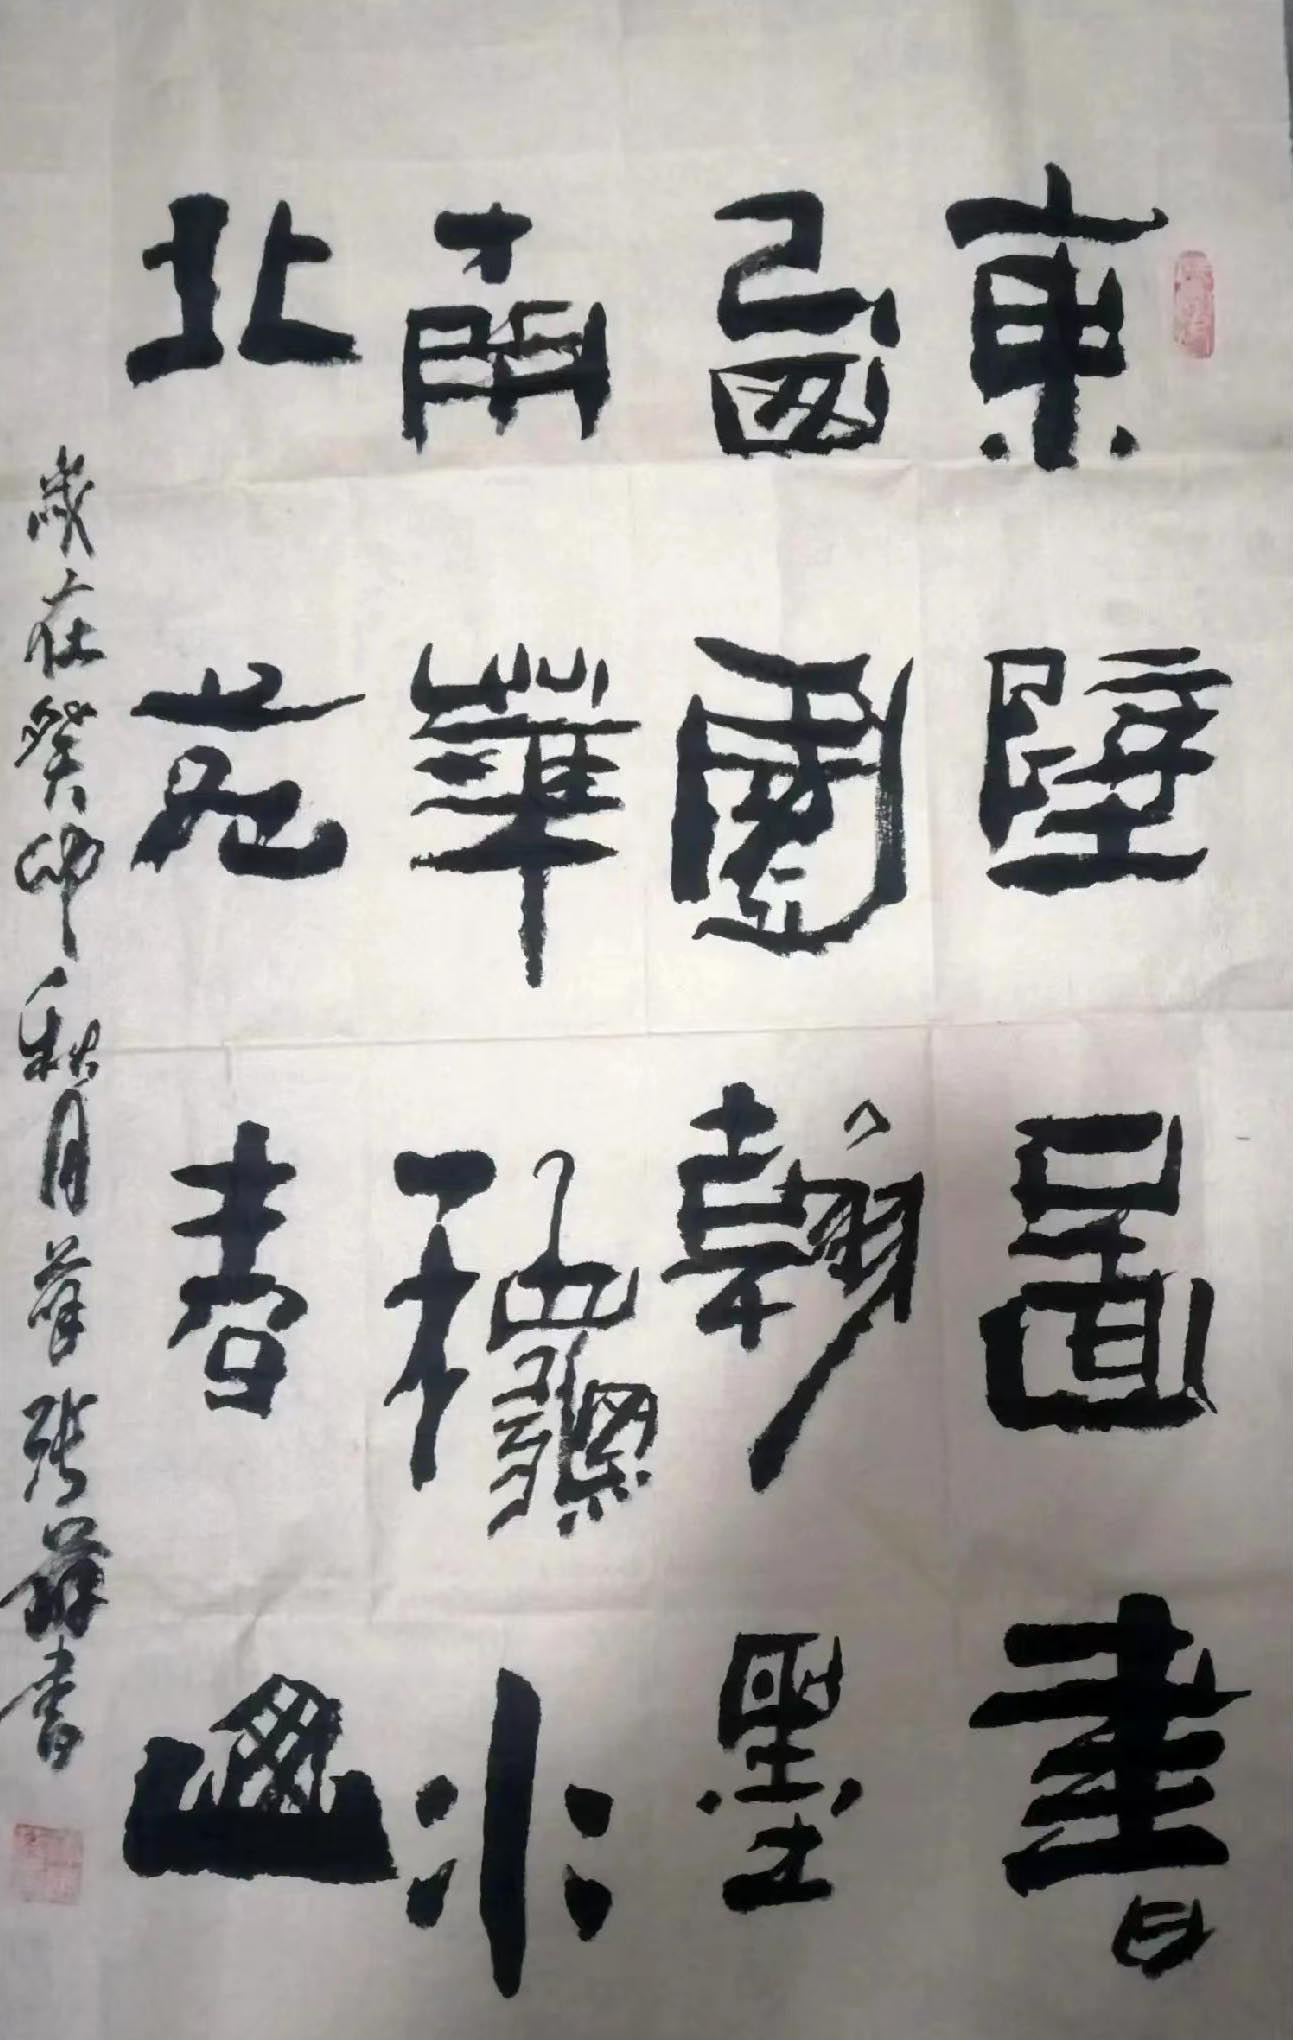 東壁圖書
西園翰墨
南華秋水
北苑春山
歲在癸卯秋月並张薛書